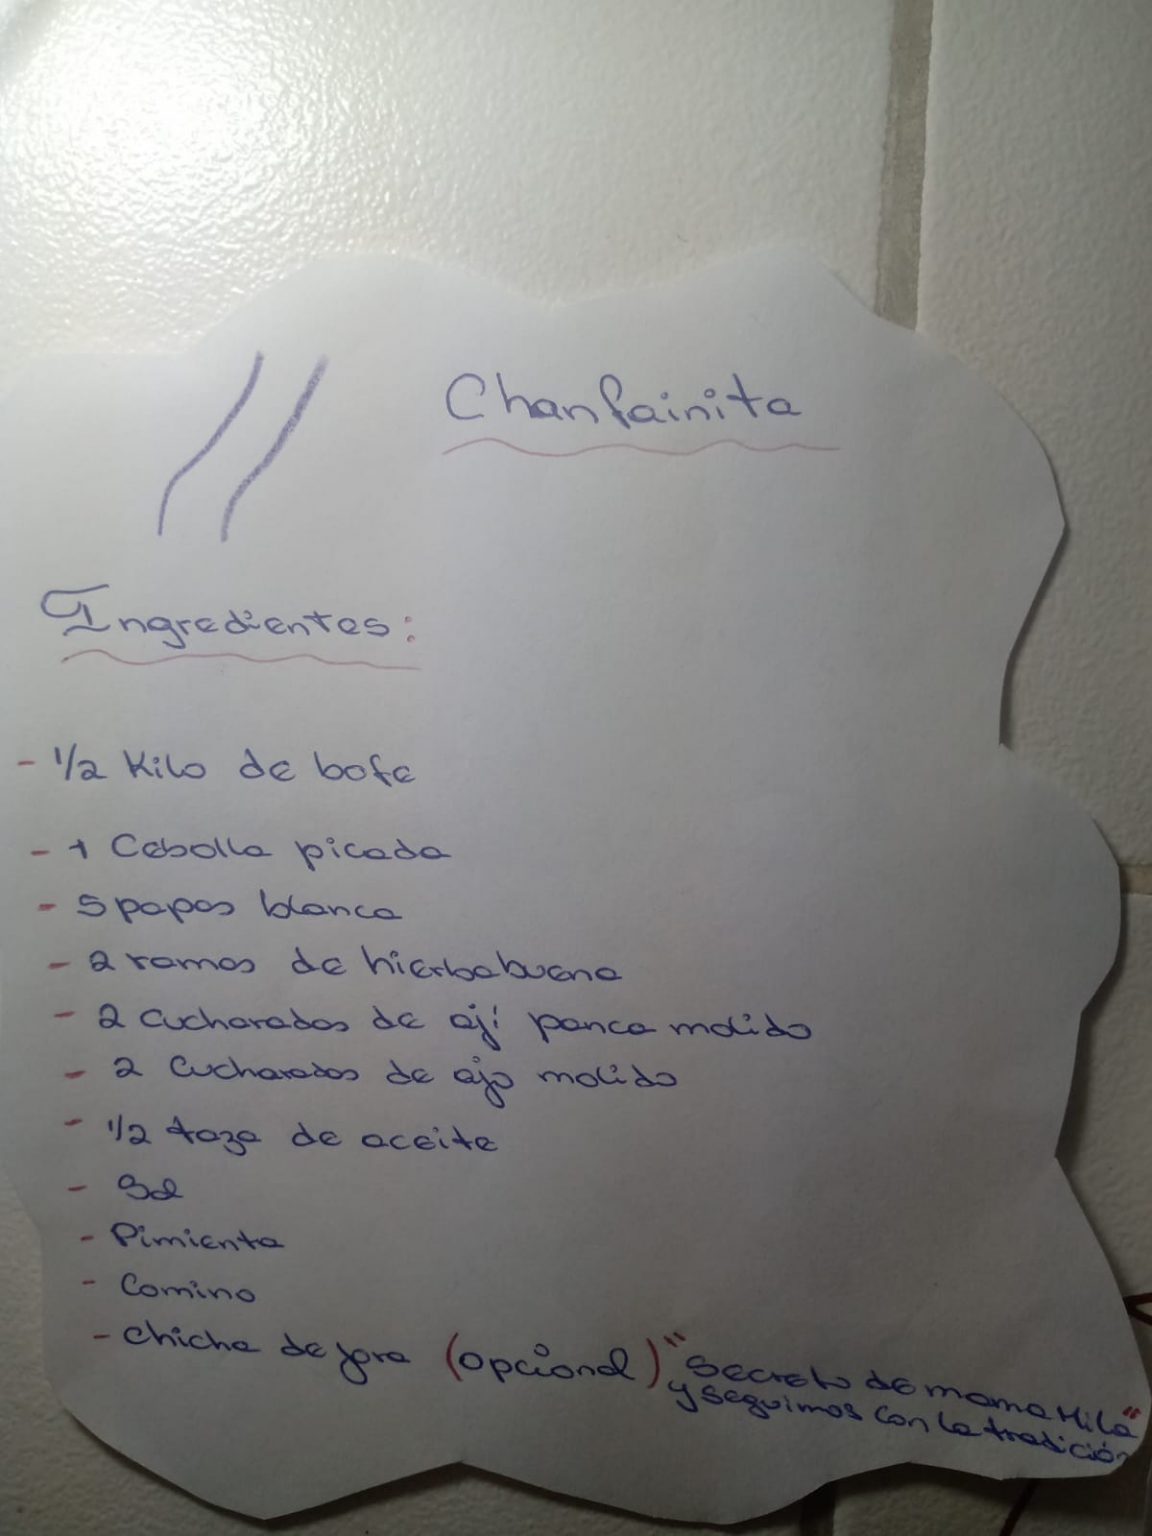 Chanfainita
Ingredientes:
- 1/2 Kilo de bofe
- 1 Cebolla picada
- 5 papas blanca
- 2 ramas de hierbabuena
- 2 cucharadas de ají panca molido
- 2 Cucharadas de ajo molido
- 1/2 taza de aceite
- Sal
- Pimienta
- Comino
- Chicha de jora (opcional) "Secreto de mama Hila"
y seguimos con la tradición